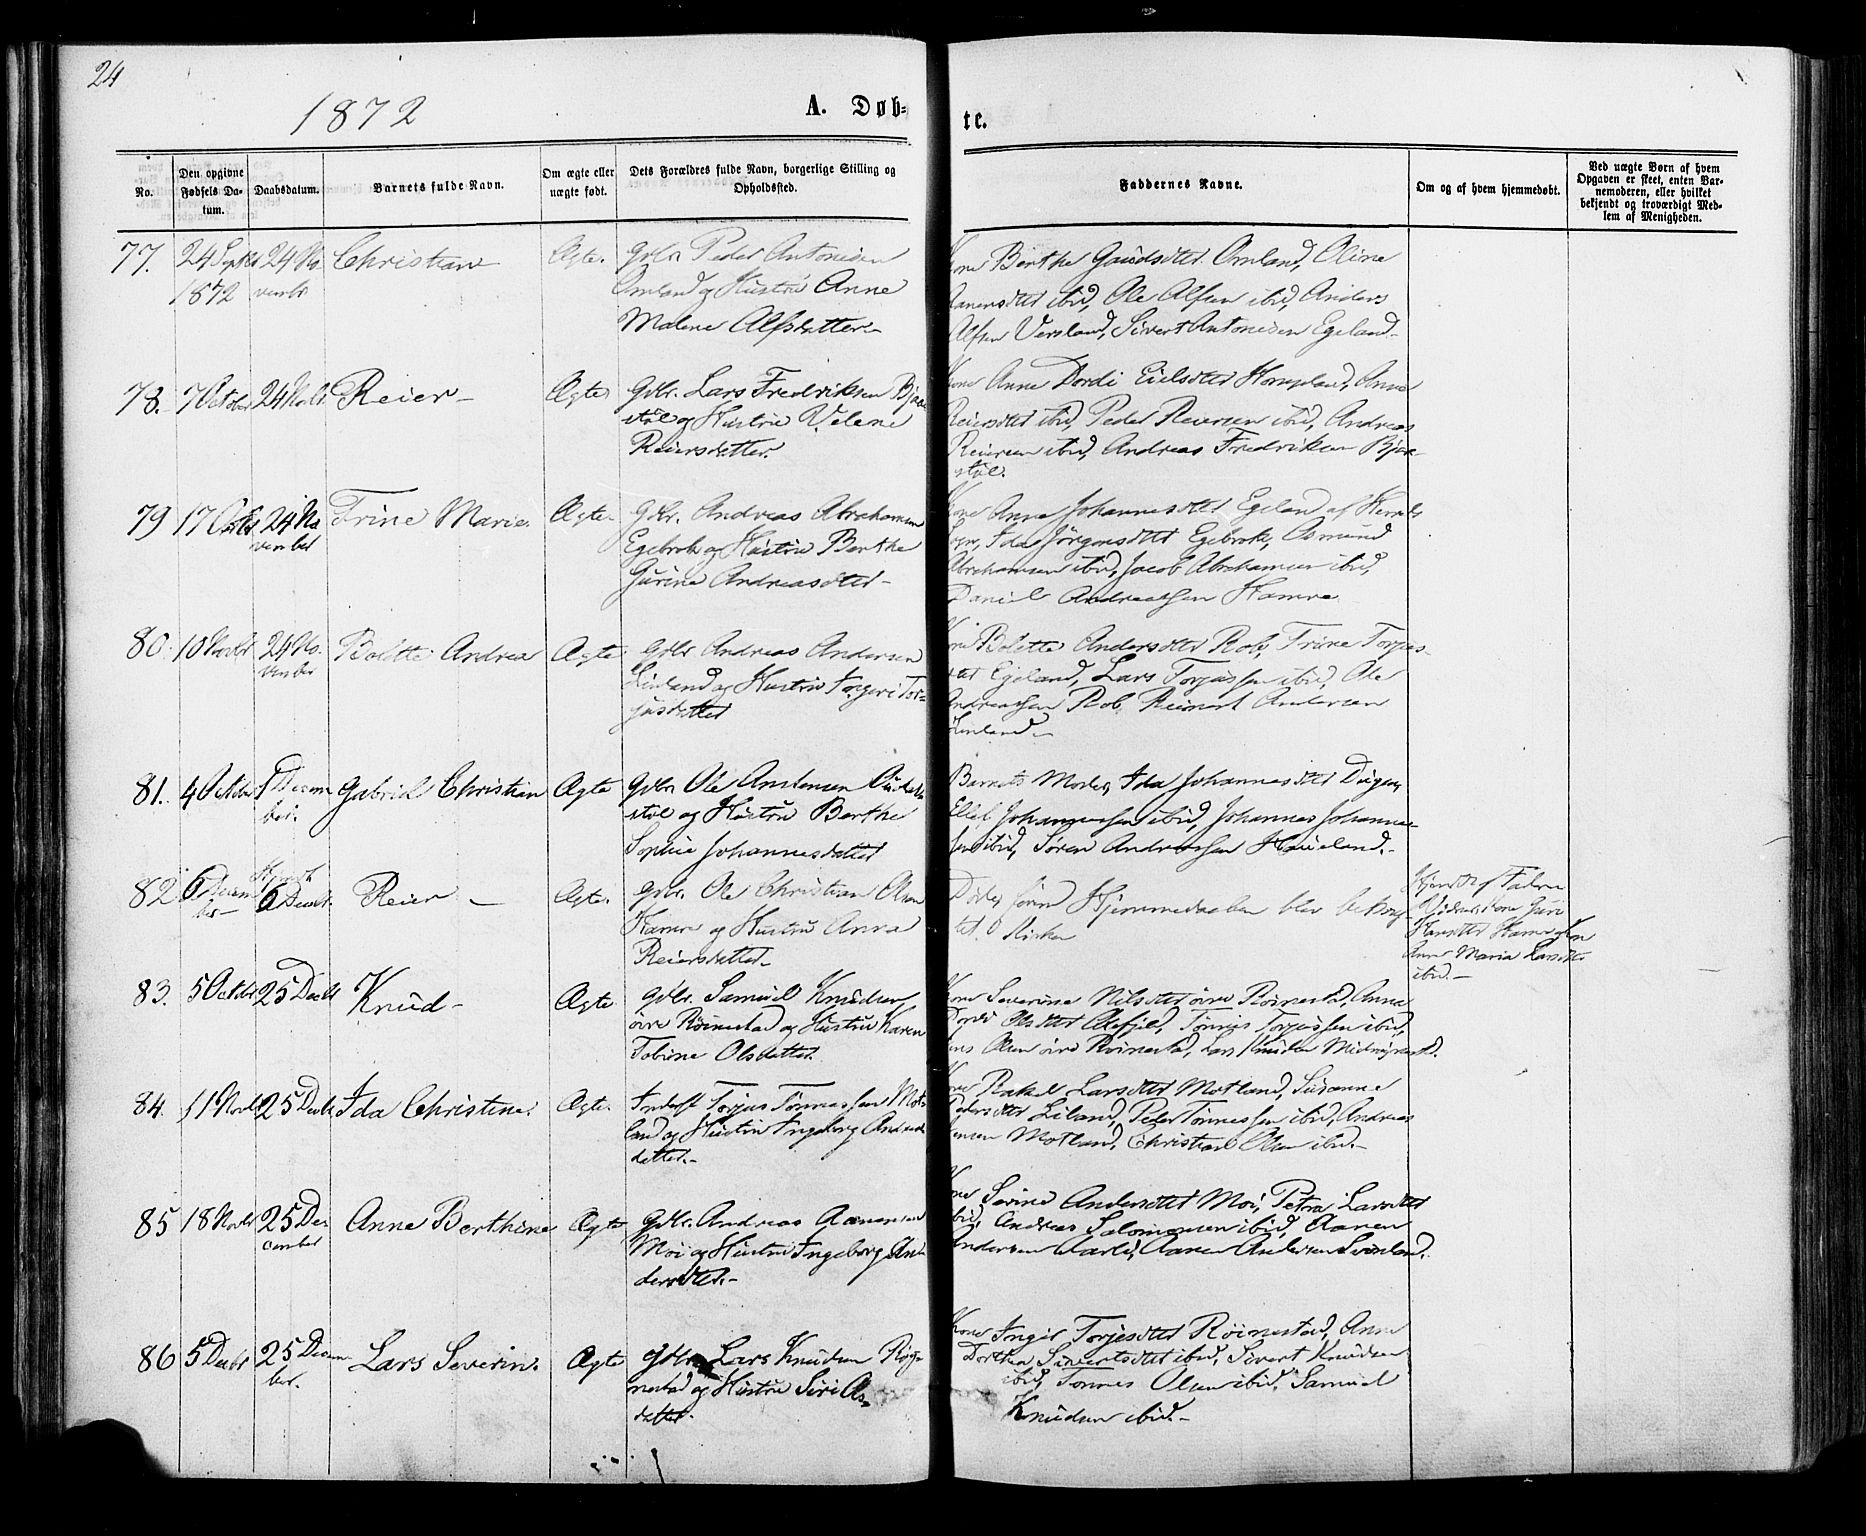 24
1872
A. Døb-
te.
No.
Den opgivne Fødsels Da-tum.
Daabsdatum.
Barnets fulde Navn.
Om ægte eller uægte født.
Dets Forældres fulde Navn, borgerlige Stilling og Opholdssted.
Faddernes Navne.
Om og af hvem hjemmedøbt.
Ved uægte Børn af hvem Opgaven er skeet, enten Bar-nemoderen, eller hvilket bekjendt og troværdigt Med-lem af Menigheden.
77.
24 Septbr
1872
24 No
vembr
Christian
Ægte.
Gdbr. Peder Antonisen
Omland og Hustru Anne
Malene Alfsdatter -
Kone Berthe Omland, Oline
ibid, Ole Alfsen ibid, Anders
Alfsen Versland, Sivert Antonisen Egeland -
78.
7 October
24 Novbr
Reier -
Ægte
Gdbr. Lars Fredriksen Bjaa
støl og Hustru Velene
Reiersdatter.
Kone Anne Dordi Eielsdtter Anne
Reiersdtter ibid, Peder Reiersen ibid, Andreas
Reiersen ibid, Andreas Fredriksen Bjaa-
støl.
79
17 Octbr
24 No
vember
Trine Marie.
Ægte.
Gdbr. Andreas Abrahamsen
Egebrok og Hustru Berthe
Gurine Andreasdtter -
Kone Anne Johannesdtter Egeland af
Ida Jørgensdtter Egebrok, Osmund
Abrahamsen ibid, Jacob Abrahamsen ibid,
Daniel Andreassen Hamre
80.
10 Novbr
24 No.
vember
Bolette Andrea
Ægte
Gdbr Andreas Andersen
og Hustru Tor-
jusdatter
Kone Bolette Andersdtter Rob, Trine Torjus-
dtter Egeland, Lars Torjussen ibid, Ole
Andreassen Rob, Reinert Andersen
81.
4 October
1 Decem
ber.
Gabriel Christian
Ægte
Gdbr Ole
støl og Hustru Berthe
Sophie Johannesdatter
Barnets Moder, Ida Johannesdtter
Ellef Johannessen ibid, Johannes Johannes-
sen ibid, Søren Andreassen Haueland. -
82
6 Decem
ber -
6 Decbr.
Reier -
Ægte.
Gdbr. Ole Christian Olsen
Hamre og Hustru Anna
Reiersdatter -
Døde, førend Hjemmedaaben blev bekræf-
tet i Kirken
Hjemdt af
Kone Guri
Hamre og
Anne Maria Larsdtter
ibid. -
83.
5 Octobr
25 Decbr
Knud -
Ægte
Gdbr. Samuel Knudsen
øvre Røinestad og Hustru Karen
Tobine Olsdatter.
Kone Severine Nilsdtter øvre Røinestad, Anne
Dordi Olsdtter Tønnes Torjussen ibid,
Olsen øvre Røinestad, Lars Knudsen
84.
11 Novbr
25 Decbr
Ida Christine.
Ægte.
Inderst Torjus Tønnessen Mot-
land og Hustru Ingeborg
datter. -
Kone Rakel Larsdtter Motland, Susanne
Pedersdtter Liland, Peder Tønnessen ibid, Andreas
Jensen Motland, Christian Olsen ibid. -
85
18 Novbr
25 De
cember
Anne Berthine
Ægte
Gdbr. Andreas Aanensen
Moi og Hustru Ingeborg An-
dersdtter. -
Kone Serine Andersdtter Moi, Petra Larsdtter
ibid, Andreas Salomonsen ibid, Aanen
Andersen Aarli, Aanen Andersen
86
5 Decbr
25 Decem
ber.
Lars Severin.
Ægte
Gdbr. Lars Knudsen Røi
nestad og Hustru Siri
datter.
Kone Inger Torjesdtter Røinestad, Anne
Dorthea Sivertsdtter ibid, Sivert Knudsen
ibid, Tønnes Olsen ibid, Samuel
Knudsen ibid. -